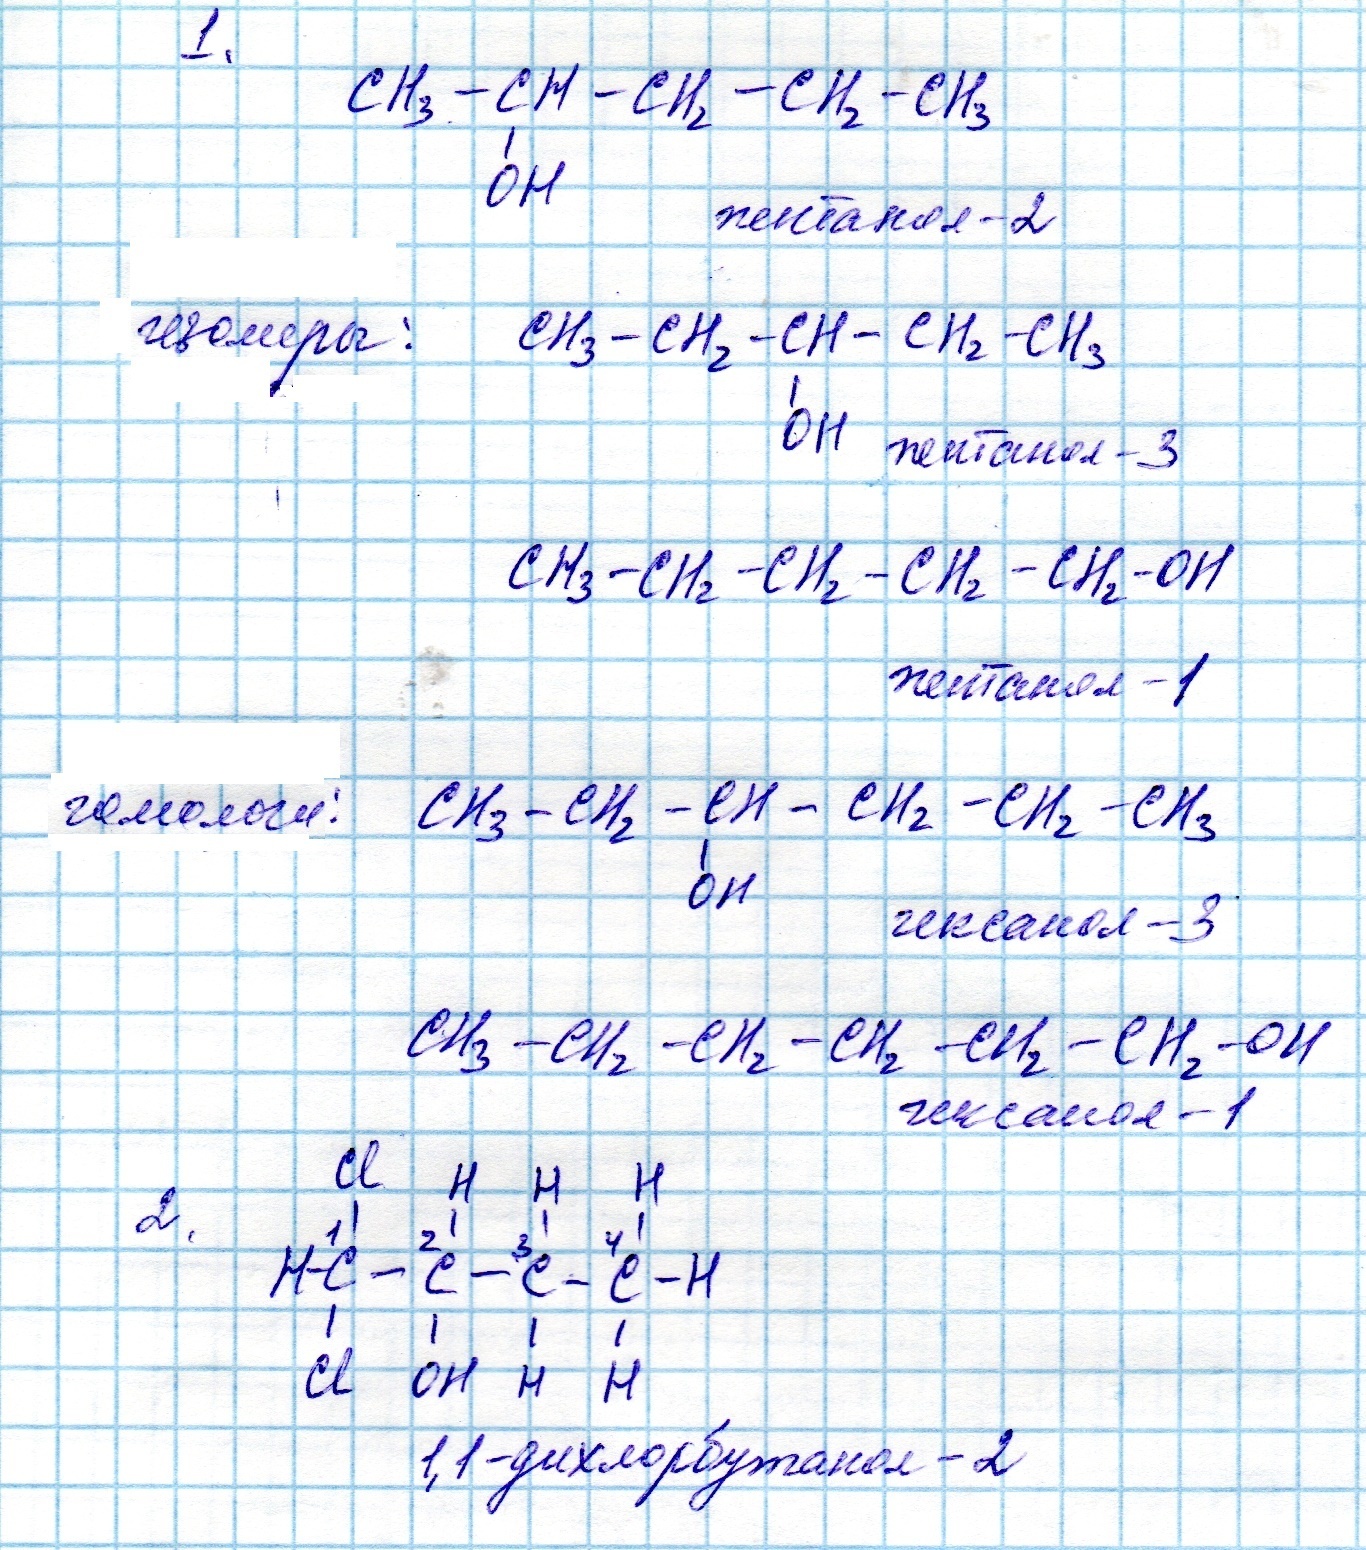 1.
CH₃ – CH – CH₂ – CH₂ – CH₃
OH
пентанол – 2
изомеры:
CH₃ – CH₂ – CH – CH₂ – CH₃
OH
пентанол – 3
CH₃ – CH₂ – CH₂ – CH₂ – CH₂ – OH
пентанол – 1
гомологи:
CH₃ – CH₂ – CH – CH₂ – CH₂ – CH₃
OH
гексанол – 3
CH₃ – CH₂ – CH₂ – CH₂ – CH₂ – CH₂ – OH
гексанол – 1
2.
Cl H H H
1 2 3 4
H – C – C – C – C – H
Cl OH H H
1,1-дихлорбутанол – 2